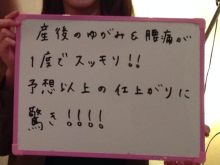 産後のゆがみ&腰痛が
1度でスッキリ!!
予想以上の仕上がりに
驚き!!!!